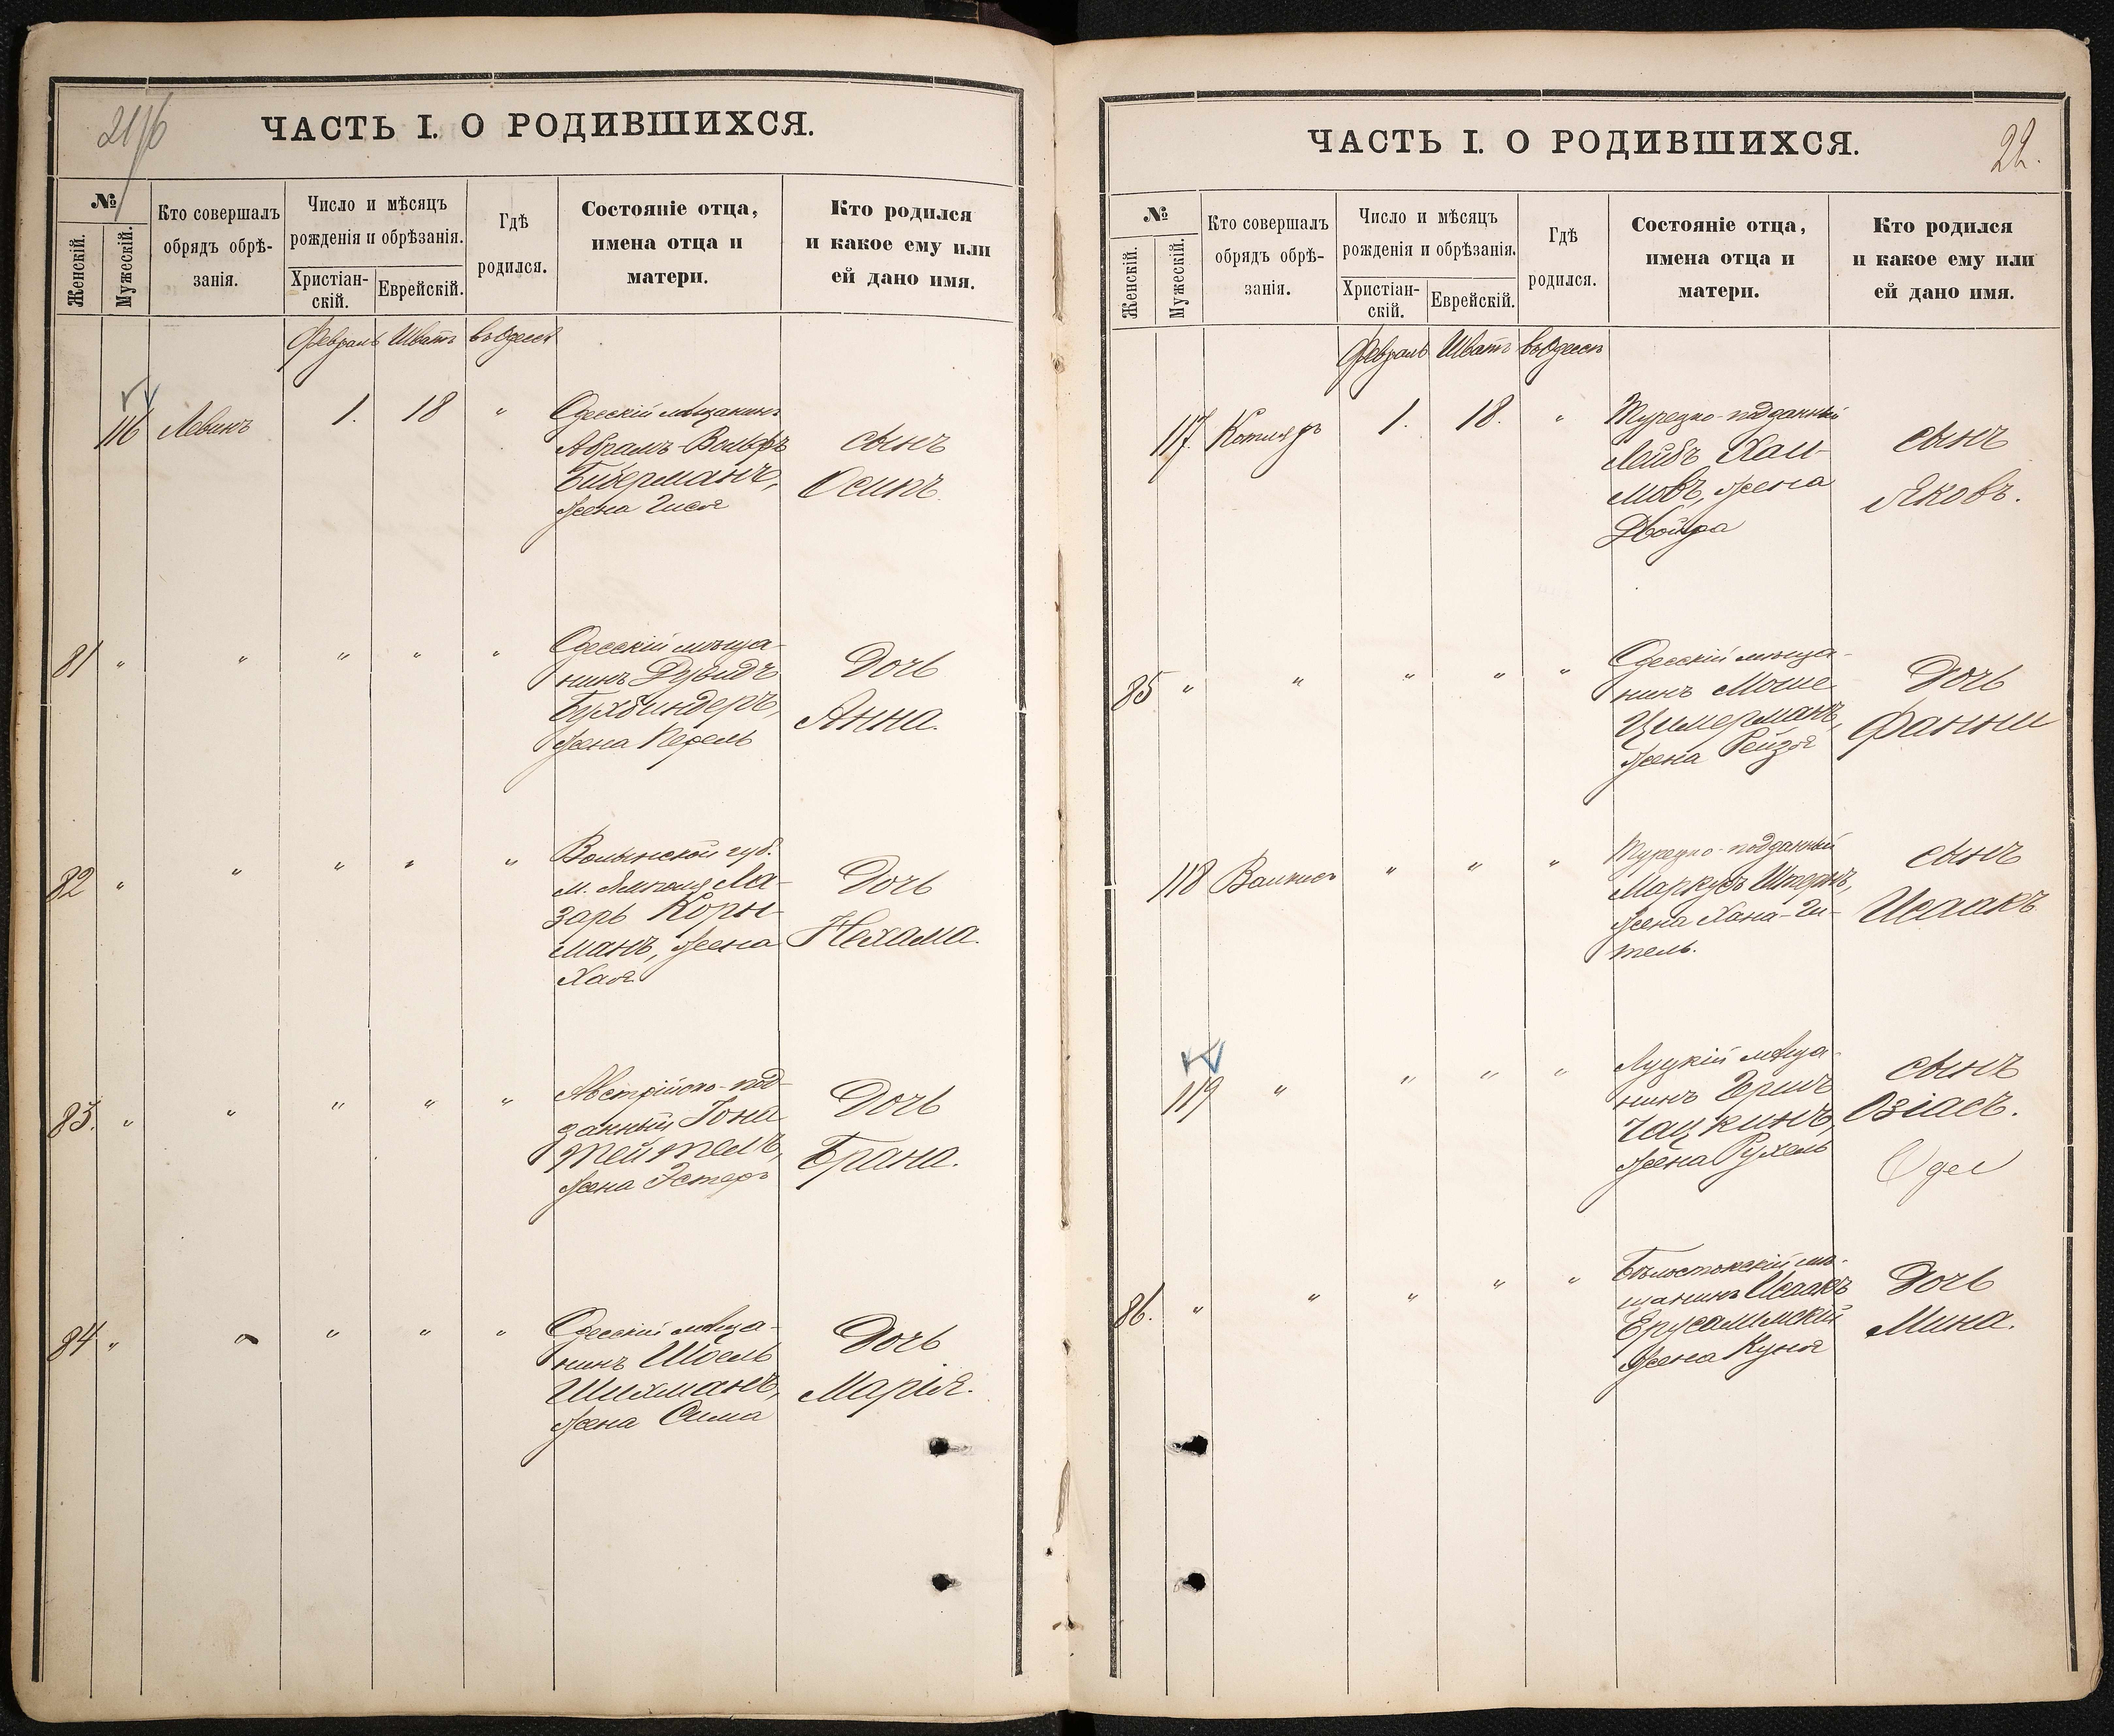 ЧАСТЬ I. О РОДИВШИХСЯ.
№
Женскій.
Мужескій.
Кто совершалъ
обрядъ обрѣ-
занія.
Число и мѣсяцъ
рожденія и обрѣзанія.
Христіан-
скій.
Еврейскій.
Гдѣ
родился.
Состояніе отца,
имена отца и
матери.
Кто родился
и какое ему или
ей дано имя.
Февраль Шватъ въ Одессѣ
116 Левинъ 1. 18 "
Одесскій мѣщанинъ
Абрамъ-Вольфъ
Биберманъ,
жена Гися
сынъ
Осипъ.
81 " " " " "
Одесскій мѣща-
нинъ Дувидъ
Бухбиндеръ,
жена Перель
Дочь
Анна.
82 " " " " "
Волынской губ.
м. Ямполя Ла-
зарь Корн-
манъ, жена
Хая
Дочь
Нехама.
83. " " " " "
Австрійско-под-
данный Іона
Тейтель,
жена Эстеръ
Дочь
Брана.
84 " " " " "
Одесскій мѣща-
нинъ Шоель
Шихманъ,
жена Сима
Дочь
Марія.
ЧАСТЬ I. О РОДИВШИХСЯ.
22.
№
Женскій.
Мужескій.
Кто совершалъ
обрядъ обрѣ-
занія.
Число и мѣсяцъ
рожденія и обрѣзанія.
Христіан-
скій.
Еврейскій.
Гдѣ
родился.
Состояніе отца,
имена отца и
матери.
Кто родился
и какое ему или
ей дано имя.
Февраль Шватъ въ Одессѣ
117. 1. 18. "
Турецко-подданный
Лейбъ Хаи-
мовъ, жена
Двойра
сынъ
Яковъ.
85 " " " " "
Одесскій мѣща-
нинъ Мошe
Цимерманъ,
жена Рейзя
Дочь
Фанни
118 " " "
Турецко-подданный
Маркусъ Штернъ,
жена Хана-Ги-
тель.
сынъ
Исаакъ
119 " " " "
Луцкій мѣща-
нинъ Гершъ
Чацкинъ,
жена Рухель
сынъ
Озіасъ.
86. " " " " "
Бѣлостокскій мѣ-
щанинъ Исаакъ
Ерусалимскій
жена Куня
Дочь
Мина.